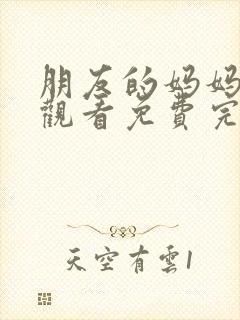 朋友的妈妈
觀看免費完
天空有雲1